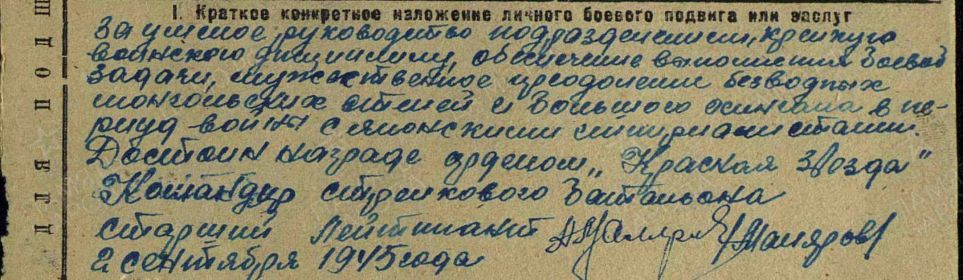 I. Краткое конкретное изложение личного боевого подвига или заслуг
За умелое руководство подразделением, крепкую
воинскую дисциплину, обеспечение выполнения боевой
задачи, мужественное преодоление безводных
монгольских степей и Большого Хингана в пе-
риод войны с японскими империалистами.
Достоин награде орденом "Красная звезда"
Командир стрелкового батальона
старший лейтинант
2 сентября 1945 года
ДЛЯ ПОДШ